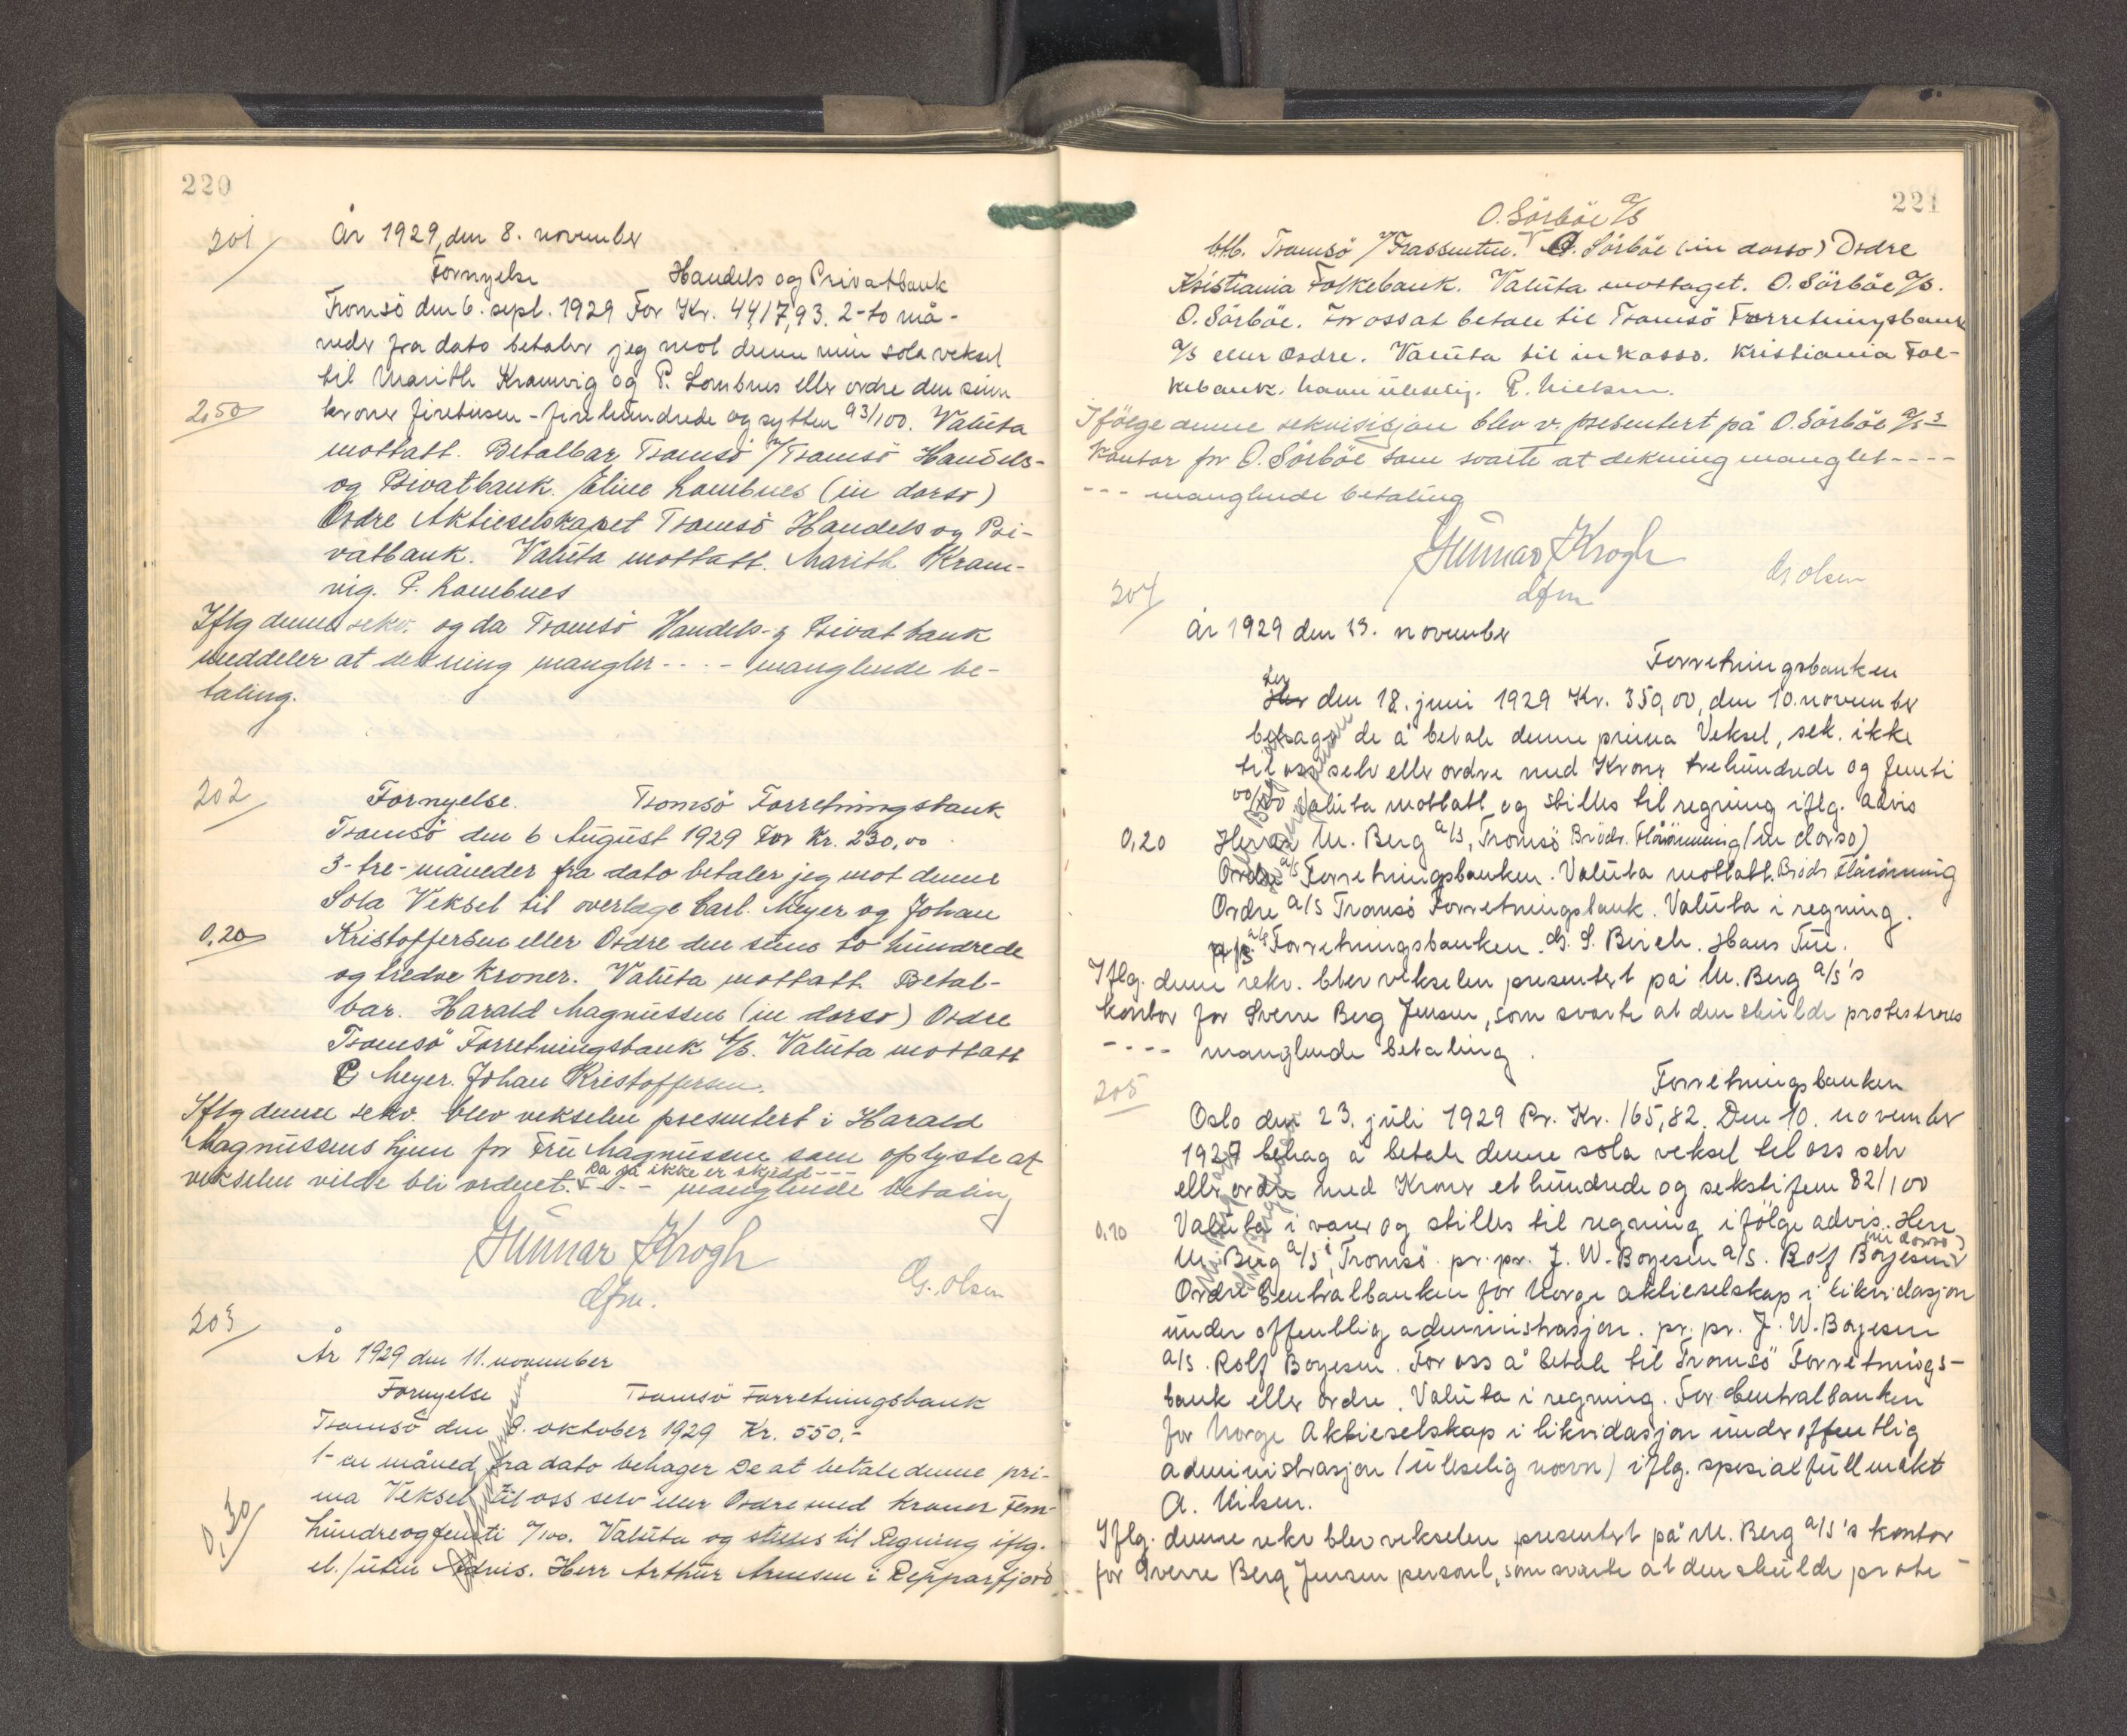 220
201/
År 1929, den 8. november
Fornyelse Handels og Privatbank
Tromsö den 6. sept. 1929 For Kr. 4417,93. 2-to må-
neder fra dato betaler jeg mot denne min sola veksel
til Marith Kramvig og P. Lombnes eller ordre den sum
2,50
kroner firetusen-firehundrede og sytten 93/100. Valuta
mottatt. Betalbar Tromsö a/Tromsö Handels-
og Privatbank. Eline Lombnes (in dorso)
Ordre Aktieselskapet Tromsö Handels og Pri-
vatbank. Valuta mottatt. Marith Kram-
vig. P. Lombnes
Iflg denne rekv. og da Tromsö Handels- & Privatbank
meddeler at dekning mangler - - - - manglende be-
taling.
202/
Fornyelse. Tromsö Forretningsbank
Tromsö den 6 August 1929 For Kr. 230,00
3-tre-måneder fra dato betaler jeg mot denne
Sola Veksel til overlæge Carl. Meyer og Johan
0,20
Kristoffersen eller Ordre den sum to hundrede
og tredve Kroner. Valuta mottatt. Betal-
bar. Harald Magnussen (in dorso) Ordre
Tromsö Forretningsbank A/S. Valuta mottatt
C Meyer. Johan Kristoffersen.
Iflg denne rekv. blev vekselen presentert i Harald
Magnussens hjem for Fru Magnussen som oplyste at
Da så ikke er skjedd - - -
vekselen vilde bli ordnet. - - - manglende betaling
Gunnar Krogh
dfm.
G. Olsen
203/
År 1929 den 11. november
Fornyelse Tromsö Forretningsbank
Tromsö den 9. oktober 1929 Kr. 550.-
1-en måned fra dato behager De at betale denne pri-
ma Veksel til oss selv eller Ordre med kroner Fem-
0,30/
hundreogfemti 0/100. Valuta og stilles til Regning iflg.
el./uten Advis. Herr Arthur Arnesen i Repparfjord
221
O. Sörböe a/s
btb. Tromsö a/Trassenten. O. Sörböe (in dorso) Ordre
Kristiania Folkebank. Valuta mottaget. O. Sörböe a/s.
O. Sörböe. For oss at betale til Tromsö Forretningsbank
a/s eller Ordre. Valuta til inkasso. Kristiania Fol-
kebank. navn uleselig. P. Nielsen.
Ifölge denne rekvisisjon blev v. presentert på O. Sörböe a/s s
Kontor for O. Sörböe som svarte at dekning manglet - - - -
- - - manglende betaling
Gunnar Krogh
dfm
G Olsen
204/
År 1929 den 13. november
Forretningsbanken
den 18. juni 1929 Kr. 350,00, den 10. november
behage de å betale denne prima Veksel, sek. ikke
til oss selv eller ordre med Kroner trehundrede og femti
00/100 Valuta mottatt og stilles til regning iflg. advis
0,20
Herrer M. Berg a/s, Tromsö Brödr. Flårönning (in dorso)
Ordre a/s Forretningsbanken. Valuta mottatt. Brödr Flårönning
Ordre a/s Tromsö Forretningsbank. Valuta i regning.
a/s Forretningsbanken. G. S. Birch. Hans Tue.
Iflg. denne rekv. blev vekselen presentert på M. Berg a/s's
kontor for Sverre Berg Jensen, som svarte at den skulde protesteres
- - - - manglende betaling.
205
Forretningsbanken
Oslo den 23. juli 1929 Pr. Kr. 165,82. Den 10. november
1929 behag å betale denne sola veksel til oss selv
eller ordre med Kroner et hundrede og sekstifem 82/100
0,20
Valuta i varer og stilles til regning ifölge advis. Herr
M. Berg a/s i Tromsö. pr. pr. J. W. Boyesen a/s. Rolf Boyesen (in dorso)
Ordre Centralbanken for Norge aktieselskap i likvidasjon
under offentlig administrasjon. pr. pr. J. W. Boyesen
a/s. Rolf Boyesen. For oss å betale til Tromsö Forretnings-
bank eller ordre. Valuta i regning. For Centralbanken
for Norge Aktieselskap i likvidasjon under offentlig
administrasjon (uleselig navn) iflg. spesialfullmakt
A. Nilsen.
Iflg. denne rekv blev vekselen presentert på M. Berg a/s's kontor
for Sverre Berg Jensen personl., som svarte at den skulde prote-